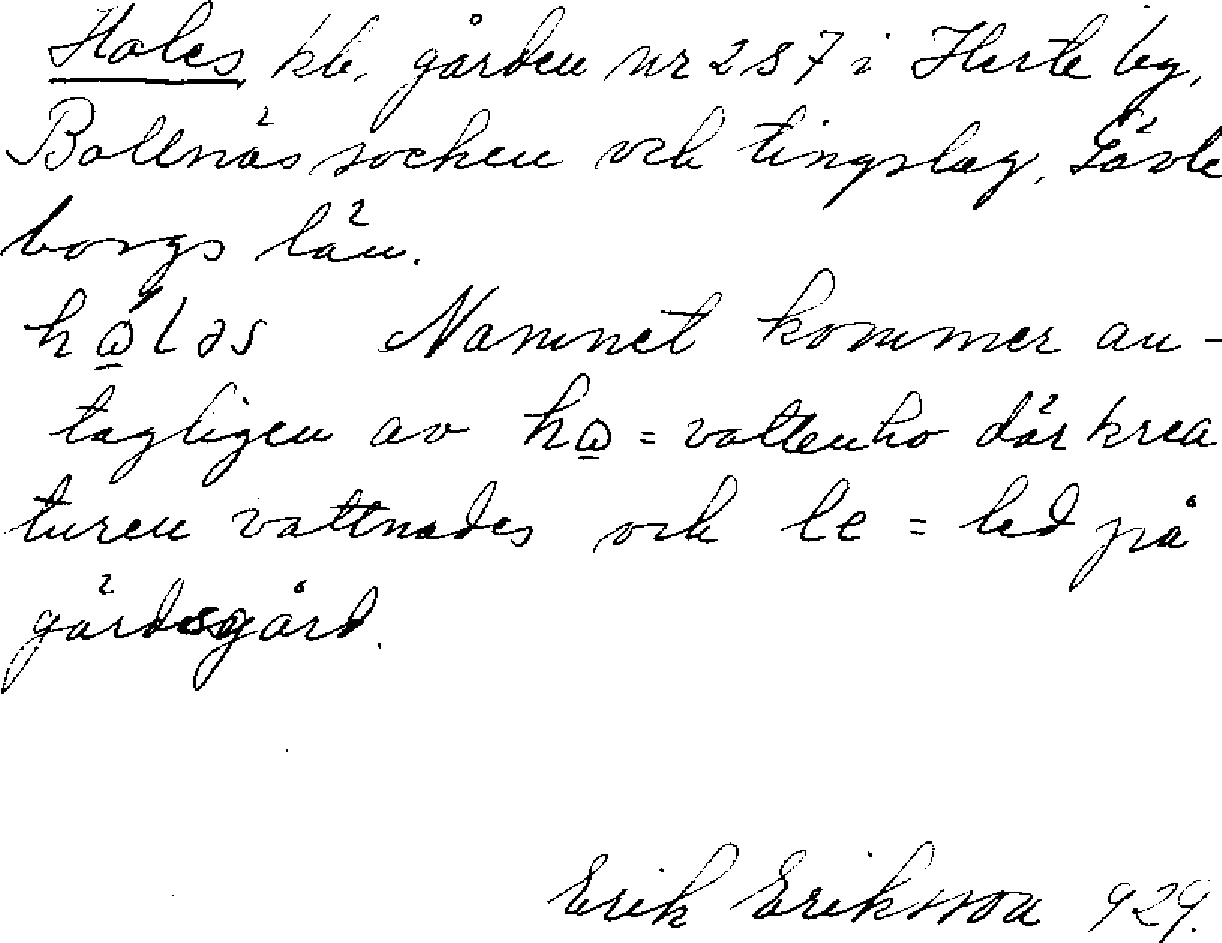 Holes kb. gården nr 2 S 7 i Herte by,
Bollnäs socken och tingslag, Gävle
borgs län.
hώ̲ləs Namnet kommer an-
tagligen av hω̲ = vattenho där krea
turen vattnades och le = led på
gärdesgård.
Erik Eriksson 929.